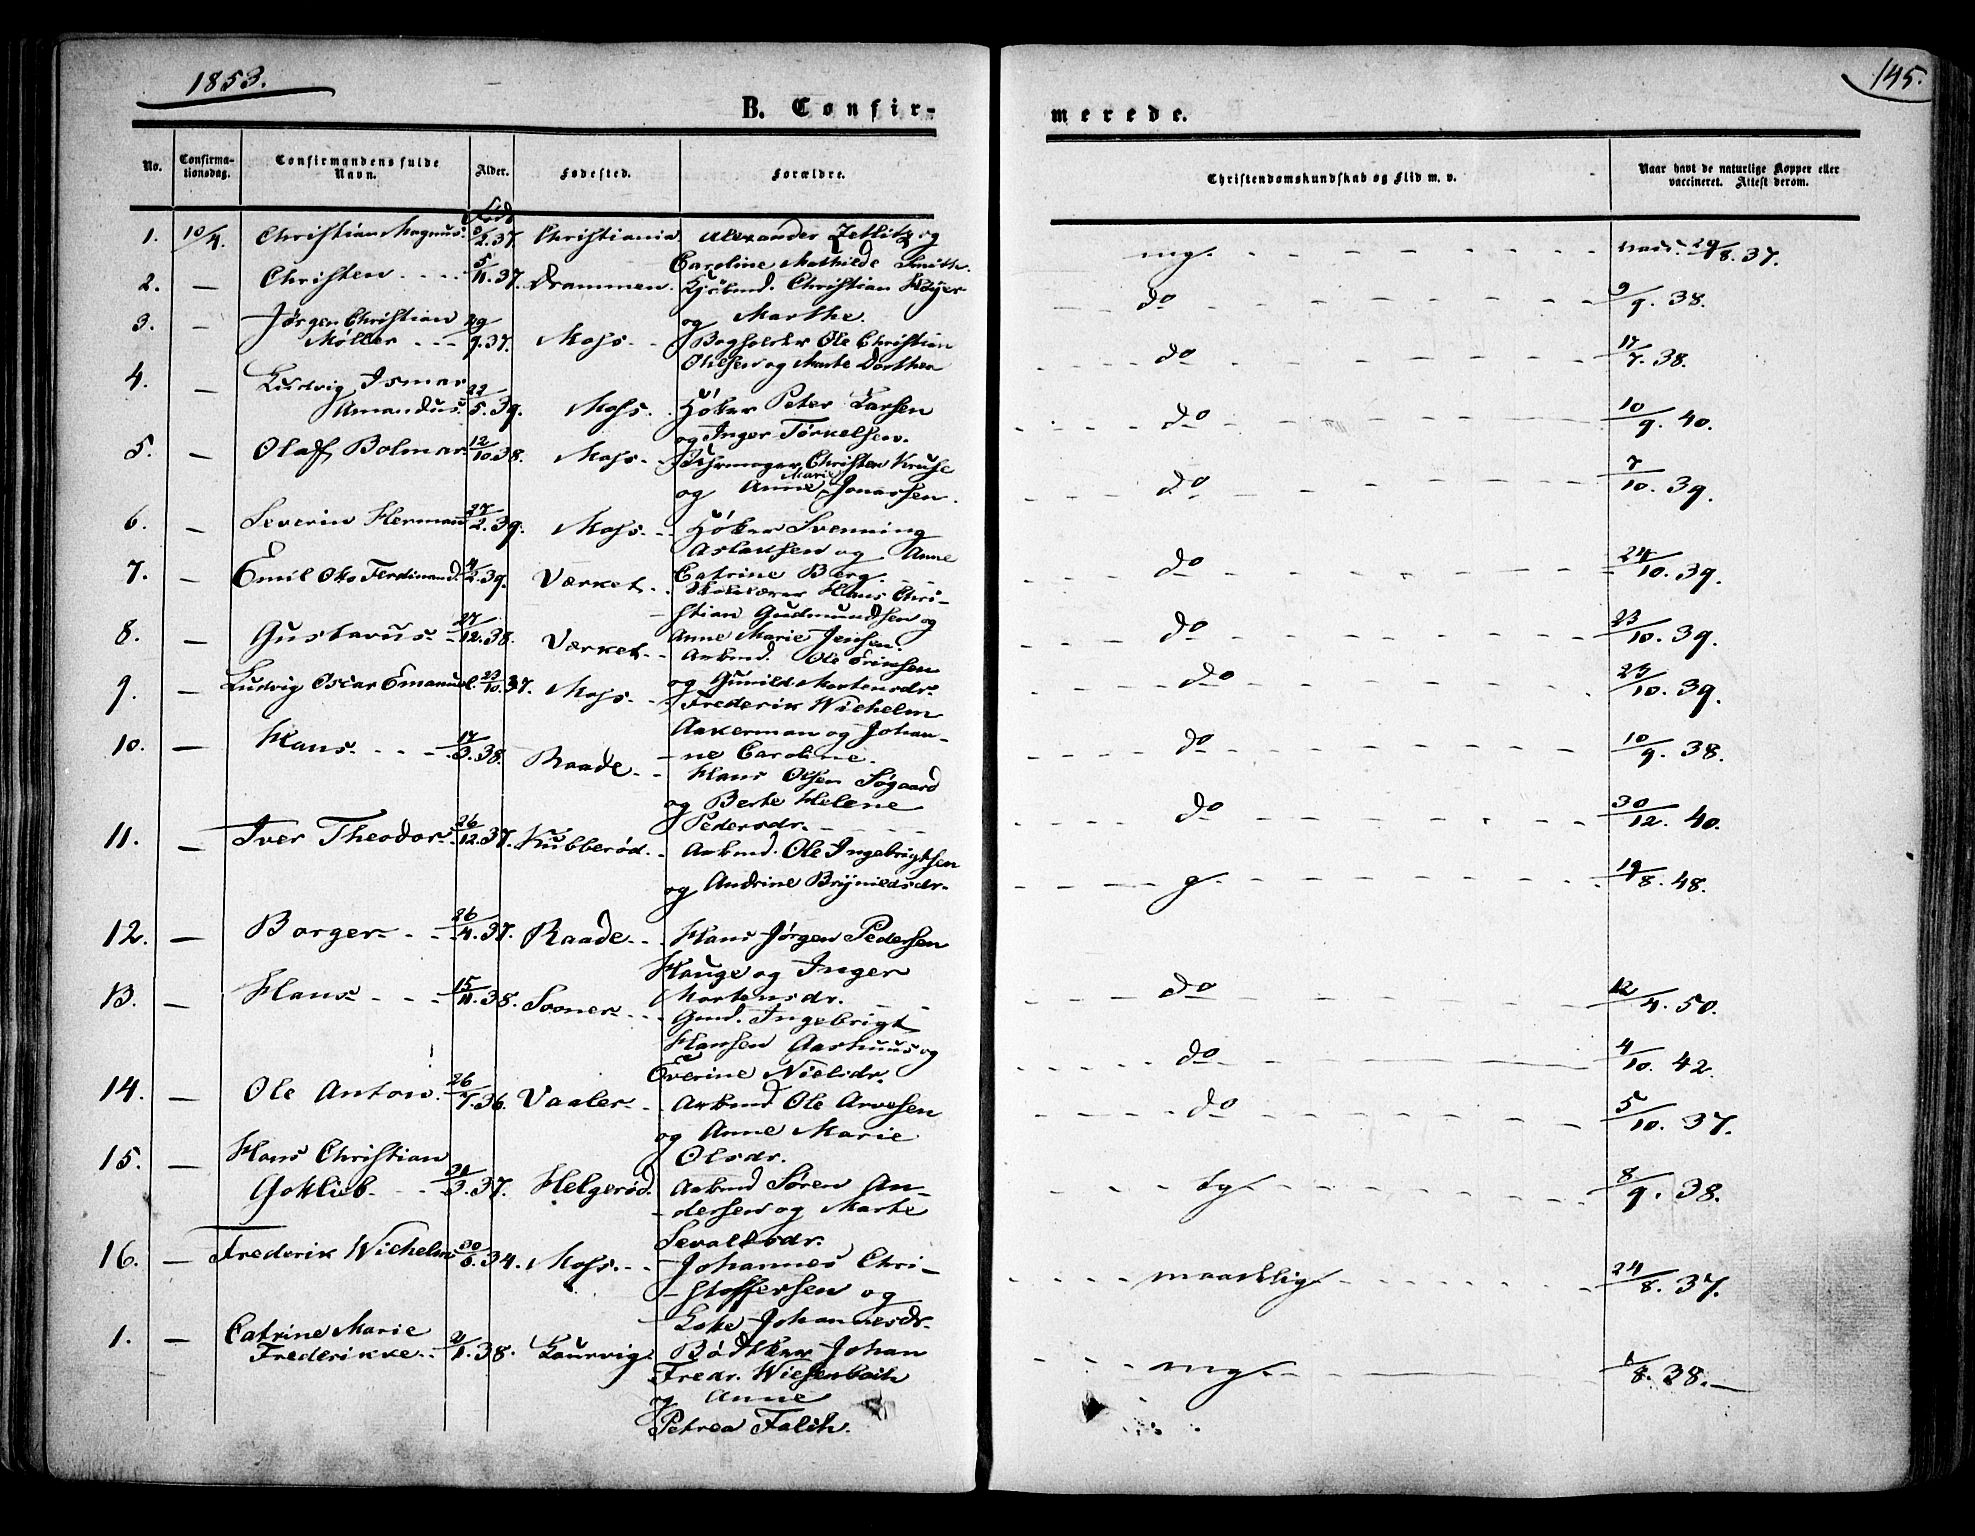 1853.
145.
B. Confir-
merede.
No.
Confirma-
tionsdag.
Confirmandens fulde
Navn.
Alder.
Fødested.
Forældre.
Christendomskundskab og Flid m. v.
Naar havt de naturlige Kopper eller
vaccineret. Attest derom.
Født
1. 10/4. Christian Magnus. /2.37. Christiania Alexander Zetlitz og
Caroline Mathilde Smith.
mg. 29/8.37.
2. — Christen 5/11.37. Drammen. Kjøbmd. Christian Høyer
og Marthe.
do 9/9.38.
3. — Jørgen Christian
Møller 29/9.37. Moss. Bogholder Ole Christian
Ohlsen og Marte Dorthea
do 17/7.38.
4. — Ludvig Ismar
Amandus. 22/5.39. Moss. Høker Peter Larsen
og Inger Torkelsen.
do 10/9.40.
5. — Olaf Bolmar 12/10.38. Moss. Uhrmager Christen Kruse
og Anne Marie Jonassen.
do 7/10.39.
6. — Severin Herman 27/2.39. Moss. Høker Svenning
Aslaksen og Anne
Catrine Berg.
do 24/10.39.
7. — Emil Otto Ferdinand. 4/2.39. Værket. Skolelærer Hans Chri-
stian Gudmundsen og
Anne Marie Jensen.
do 23/10.39.
8. — Gustavus 27/12.38. Værket. Arbmd. Ole Eriksen
og Gunild Mortensdr.
do 23/10.39.
9. — Ludvig Oscar Emanuel. 23/10.37. Moss. Frederik Wilhelm
Aakerman og Johan-
ne Caroline.
do 10/9.38.
10. — Hans 17/3.38. Raade Hans Olsen Søgaard
og Berte Helene
Pedersdr.
do 30/12.40.
11. — Iver Theodor 26/12.37. Kubberød. Arbmd. Ole Ingebrigtsen
og Andrine Brynildsdr.
g. 19/8.48.
12. — Borger 26/4.37. Raade Hans Jørgen Pedersen
Hauge og Inger
Mortensdr.
do 12/4.50.
13. — Hans 15/11.38. Sooner Gmd. Ingebrigt
Hansen Aashuus og
Everine Nielsdr.
do 4/10.42.
14. — Ole Anton. 26/7.36. Vaaler Arbmd Ole Arvesen
og Anne Marie
Olsdr.
do 5/10.37.
15. — Hans Christian
Gotlieb. /3.37. Helgerød. Arbmd Søren An-
dersen og Marte
Sevaldsdr.
tg. 8/9.38.
16. — Frederik Wilhelm 30/6.34. Moss. Johannes Chri-
stoffersen og
Johannesdr.
maadelig 24/8.37.
1. — Catrine Marie
Frederikke 2/1.38. Laurvig. Bødtker Johan
Fredr. Wiesenbach
og Anne
Petrea Falch.
mg. /8.38.